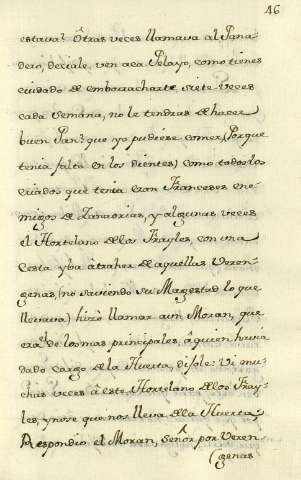 46
estava? Otras veces llamava al Pana-
dero, deciale, ven aca Pelayo, como tienes
cuidado de emborracharte siete veces
cada semana, no le tendras de hacer
buen Pan? que yo pudiese comer, (Porque
tenia falta en los dientes) como todos los
criados que tenia eran Franceses ene-
migos de Zanaorias, y algunas veces
el Hortelano de los Frayles, con una
Cesta yba â traher de aquellas Veren-
genas, (no saviendo su Magestad lo que
llevava) hizo llamar a un Moran, que
era de los mas principales, â quien havia
dado cargo de la Huerta, dijole: Vi mu-
chas veces â este Hortelano de los Fray-
les, y no se que nos lleva de la Huerta;
Respondio el Moran, Señor por Veren-
(genas